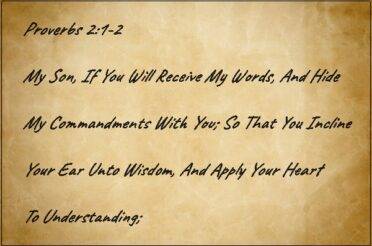 Proverbs 2:1-2
My Son, If You Will Receive My Words, And Hide
My Commandments With You; So That You Incline
Your Ear Unto Wisdom, And Apply Your Heart
To Understanding;